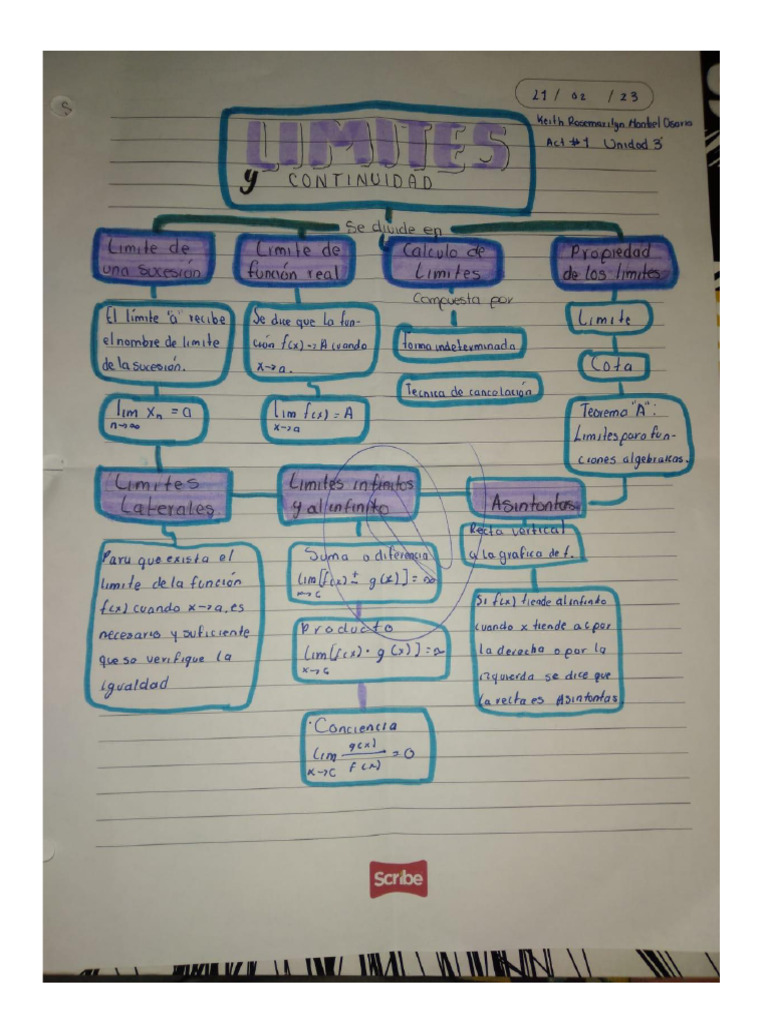 21 / 02 / 23
Keith Rosemarilyn Monkel Osorio
Act #1 Unidad 3
LIMITES
y CONTINUIDAD
Se divide en
Limite de
una sucesión
El límite "a" recibe
el nombre de limite
de la sucesión.
lim Xn = a
n→∞
Limite de
función real
Se dice que la fun-
ción f(x)→A cuando
x→a.
lim f(x) = A
x→a
Calculo de
Limites
Compuesta por
Forma indeterminada
Tecnica de cancelación
Propiedad
de los limites
Limite
Cota
Teorema "A":
Limites para fun-
ciones algebraicas.
Limites
Laterales
Para que exista el
limite de la función
f(x) cuando x→a, es
necesario y suficiente
que se verifique la
igualdad
Limites infinitos
y al infinito
Suma o diferencia
lim [f(x) ± g(x)] = ∞
x→c
Producto
lim [f(x) · g(x)] = ∞
x→c
·Conciencia
lim g(x)/f(x) = 0
x→c
Asintontas
Recta vertical
a la grafica de f.
Si f(x) tiende al infinito
cuando x tiende a c por
la derecha o por la
izquierda se dice que
la recta es Asintontas
Scribe